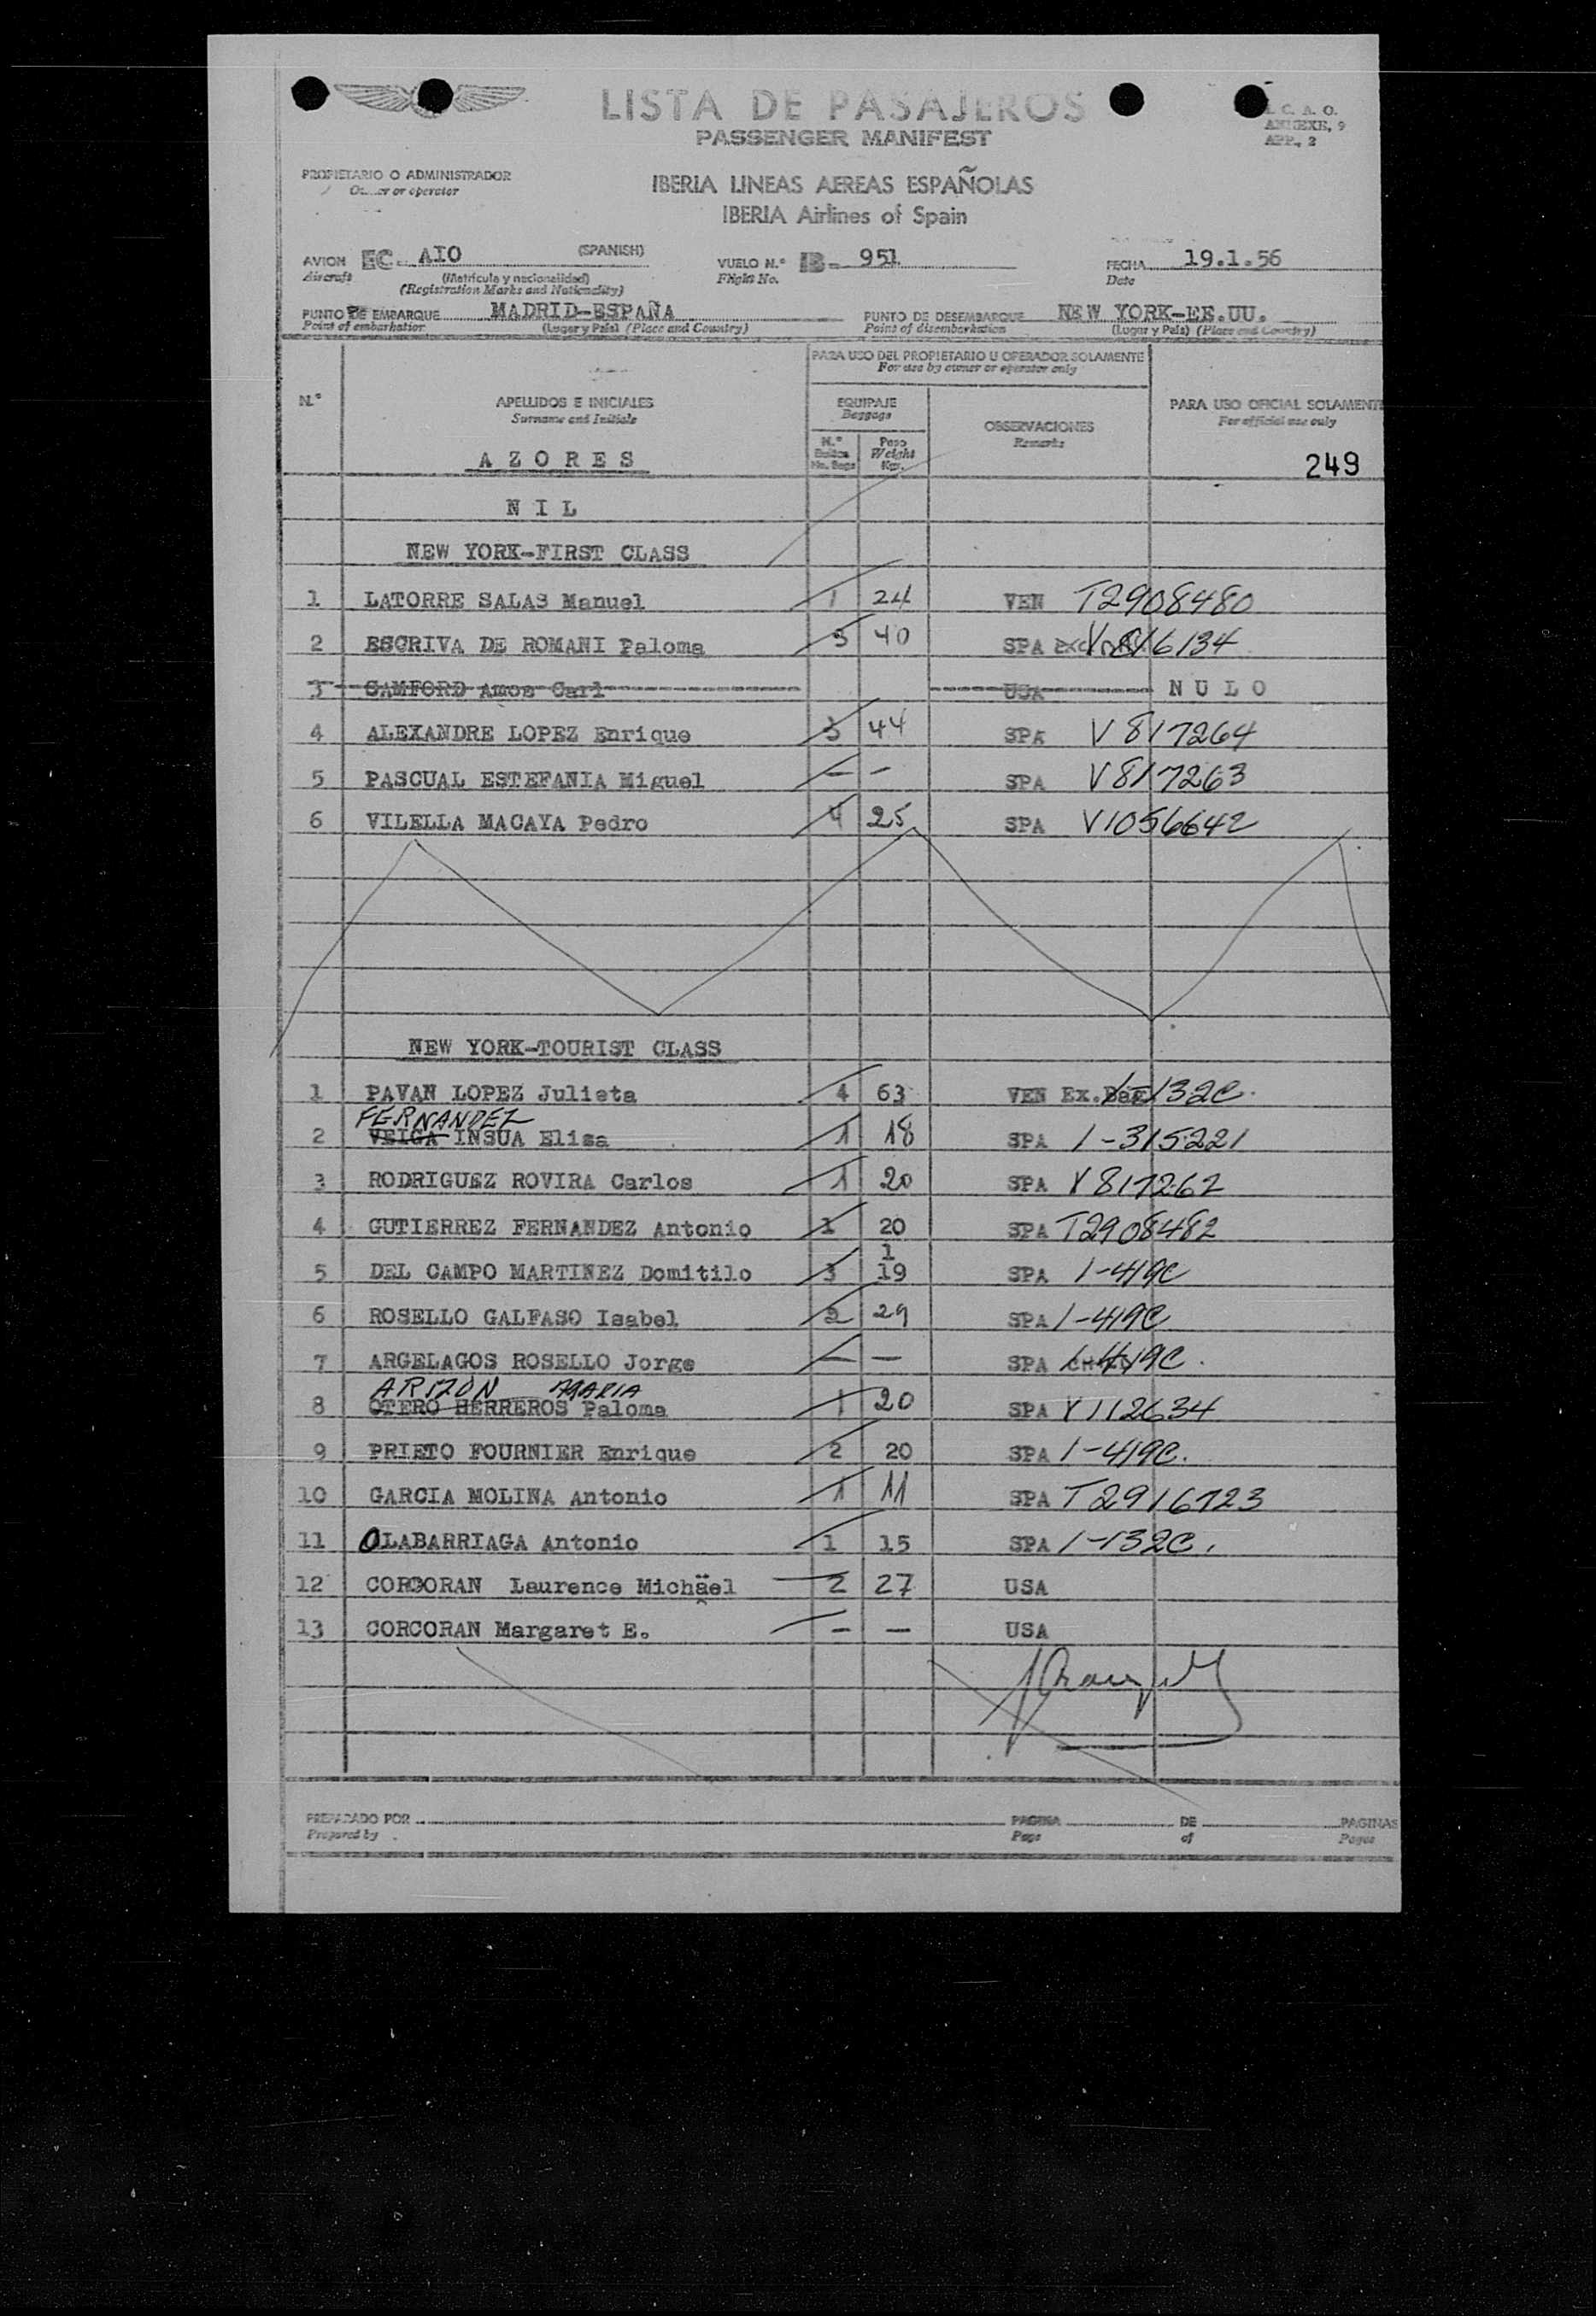 LISTA DE PASAJEROS
PASSENGER MANIFEST
I. C. A. O.
ANNEXE, 9
APP., 2
PROPIETARIO O ADMINISTRADOR
Owner or operator
IBERIA LINEAS AEREAS ESPAÑOLAS
IBERIA Airlines of Spain
AVION EC- AIO (SPANISH) VUELO N.º IB- 951 FECHA 19.1.56
Aircraft (Matrícula y nacionalidad) Flight No. Date
(Registration Marks and Nationality)
PUNTO DE EMBARQUE MADRID-ESPAÑA PUNTO DE DESEMBARQUE NEW YORK-EE.UU.
Point of embarkation (Lugar y País) (Place and Country) Point of disembarkation (Lugar y País) (Place and Country)
PARA USO DEL PROPIETARIO U OPERADOR SOLAMENTE
For use by owner or operator only
N.º APELLIDOS E INICIALES EQUIPAJE OBSERVACIONES PARA USO OFICIAL SOLAMENTE
Surname and Initials Baggage Remarks For official use only
N.º Bultos No. Bags Peso Weight Kgr.
AZORES 249
NIL
NEW YORK-FIRST CLASS
1 LATORRE SALAS Manuel 1 24 VEN T2908480
2 ESCRIVA DE ROMANI Paloma 3 40 SPA V816134
3 SAMFORD Amos Carl USA NULO
4 ALEXANDRE LOPEZ Enrique 3 44 SPA V817264
5 PASCUAL ESTEFANIA Miguel — — SPA V817263
6 VILELLA MACAYA Pedro 4 25 SPA V1056642
NEW YORK-TOURIST CLASS
1 PAVAN LOPEZ Julieta 4 63 VEN Ex.Bag 1-132C.
FERNANDEZ
2 VEIGA INSUA Elisa 1 18 SPA 1-315221
3 RODRIGUEZ ROVIRA Carlos 1 20 SPA V817262
4 GUTIERREZ FERNANDEZ Antonio 1 20 SPA T2908482
1
5 DEL CAMPO MARTINEZ Domitilo 3 19 SPA 1-419C
6 ROSELLO GALFASO Isabel 2 29 SPA 1-419C
7 ARGELAGOS ROSELLO Jorge — — SPA 1-419C.
ARIZON MARIA
8 OTERO HERREROS Paloma 1 20 SPA V1112634
9 PRIETO FOURNIER Enrique 2 20 SPA 1-419C.
10 GARCIA MOLINA Antonio 1 11 SPA T2916723
11 OLABARRIAGA Antonio 1 15 SPA 1-132C.
12 CORCORAN Laurence Michael 2 27 USA
13 CORCORAN Margaret E. — — USA
PREPARADO POR PAGINA DE PAGINAS
Prepared by Page of Pages